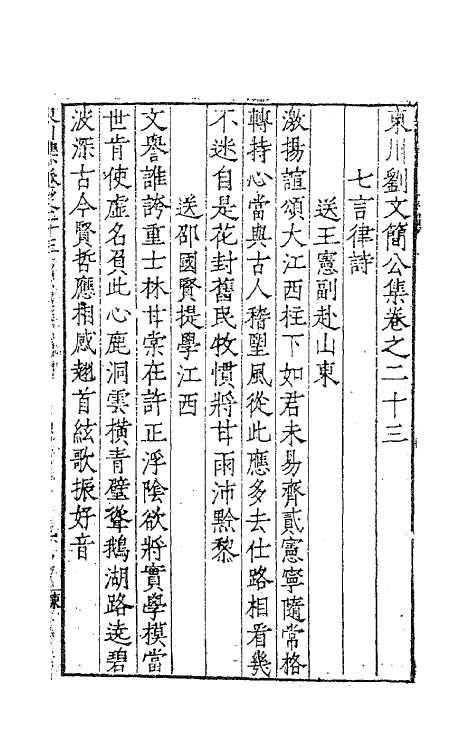 東川劉文簡公集卷之二十三
七言律詩
送王憲副赴山東
激揚誼頌大江西柱下如君未易齊貳憲寧隨常格
轉持心當與古人稽望風從此應多去仕路相看幾
不迷自是花封舊民牧慣將甘雨沛黔黎
送邵國賢提學江西
文譽誰誇重士林甘棠在許正浮陰欲將實學模當
世肯使虛名負此心鹿洞雲橫青壁聳鵝湖路遶碧
波深古今賢哲應相感翹首絃歌振好音